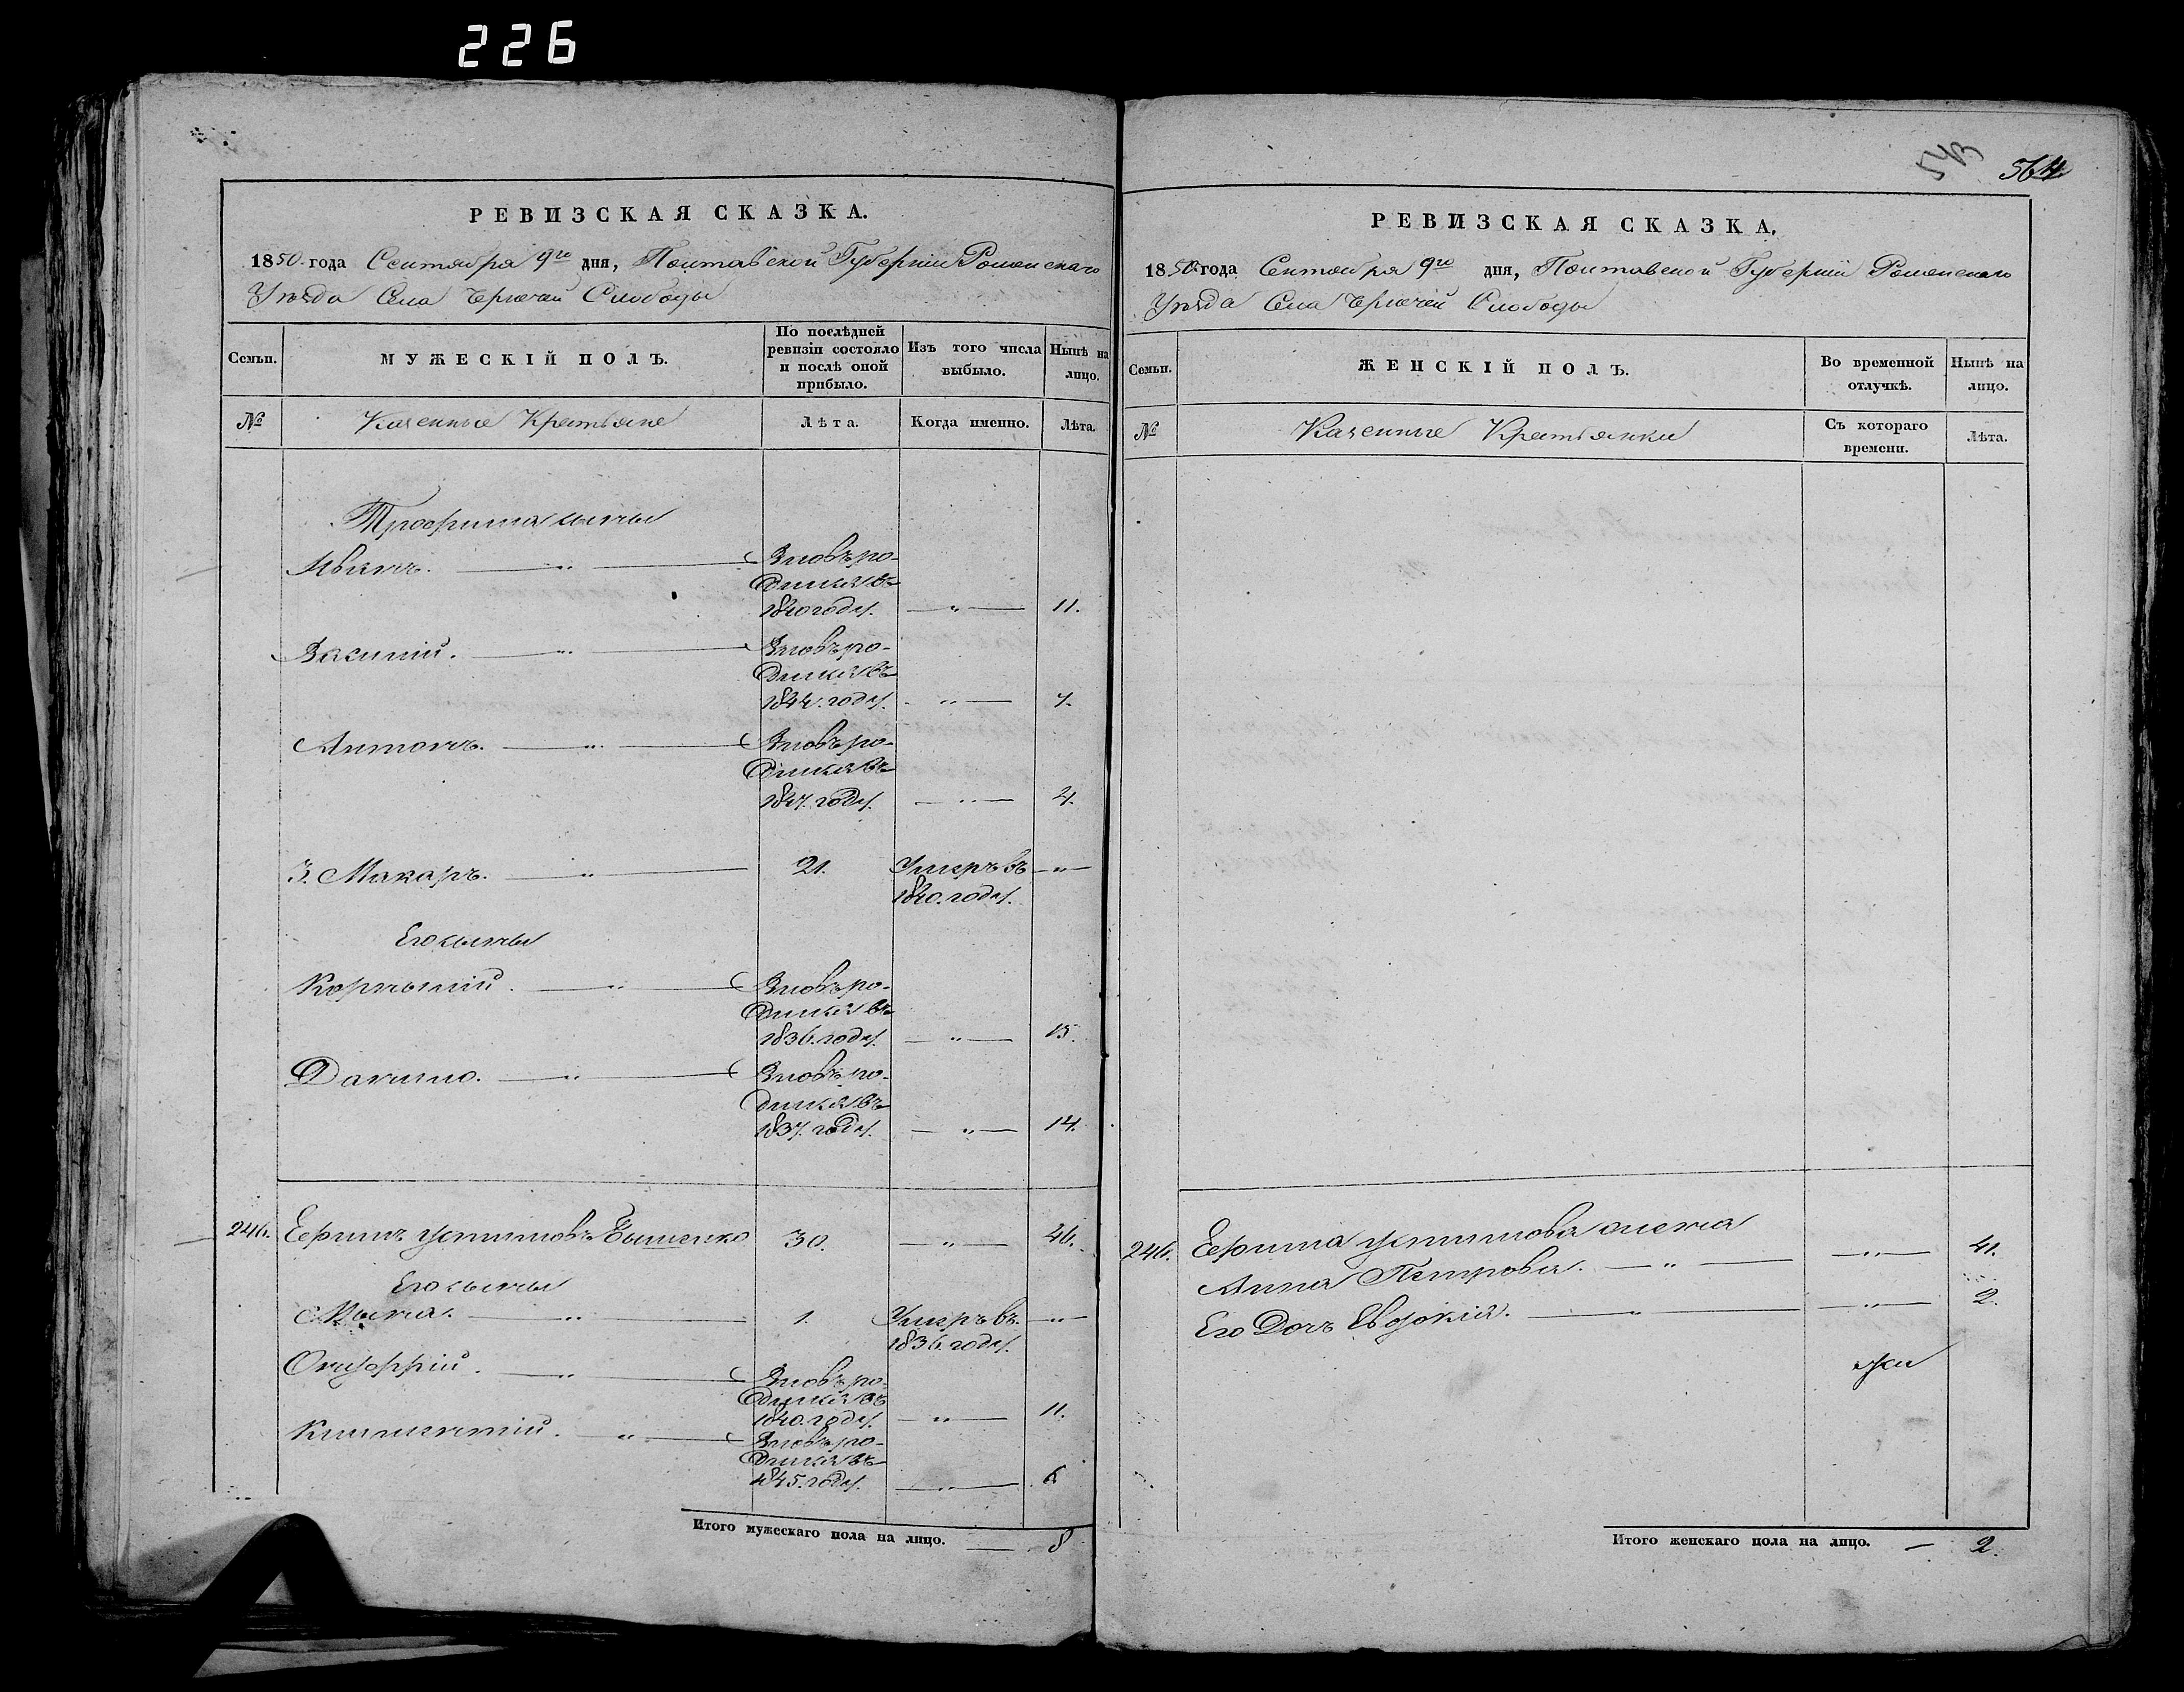 226
РЕВИЗСКАЯ СКАЗКА.
1850 года Сентября 9го дня, Полтавской Губерніи Роменскаго
Уѣзда Села Слободы
Семьи.
МУЖЕСКІЙ ПОЛЪ.
По послѣдней ревизіи состояло и послѣ оной прибыло.
Изъ того числа выбыло.
Нынѣ на лицо.
№
Казенные Крестьяне
Лѣта.
Когда именно.
Лѣта.
Трофима сыны
Иванъ. — " — Вновь ро-
дился въ
1840 году. — " — 11.
Василий. — " — Вновь ро-
дился въ
1844. году. — " — 7.
Антонъ. — " — Вновь ро-
дился въ
1847. году. — " — 4.
3. Макаръ. — " — 21. Умеръ въ — " —
1840. году.
Его сыны
Корнылий. — " — Вновь ро-
дился въ
1836. году. — " — 15.
Данило. — " — Вновь ро-
дился въ
1837. году. — " — 14.
246. Ефимъ Устимовъ 30. — " — 46.
Его сыны
1. Умеръ въ — " —
1836. году.
Онуфрій. — " — Вновь ро-
дился въ
1840. году. — " — 11.
Климентий. — " — Вновь ро-
дился въ
1845. году. — " — 6
Итого мужескаго пола на лицо. — 8
543
564
РЕВИЗСКАЯ СКАЗКА.
1850 года Сентября 9го дня, Полтавской Губерніи Роменскаго
Уѣзда Села Слободы
Семьи.
ЖЕНСКІЙ ПОЛЪ.
Во временной отлучкѣ.
Нынѣ на лицо.
№
Казенные Крестьянки
Съ котораго времени.
Лѣта.
246. Ефима Устимова жена
Анна Петрова. — " — — " — 41.
Его Дочь Евдокія. — " — — " — 2.
Итого женскаго пола на лицо. — 2.